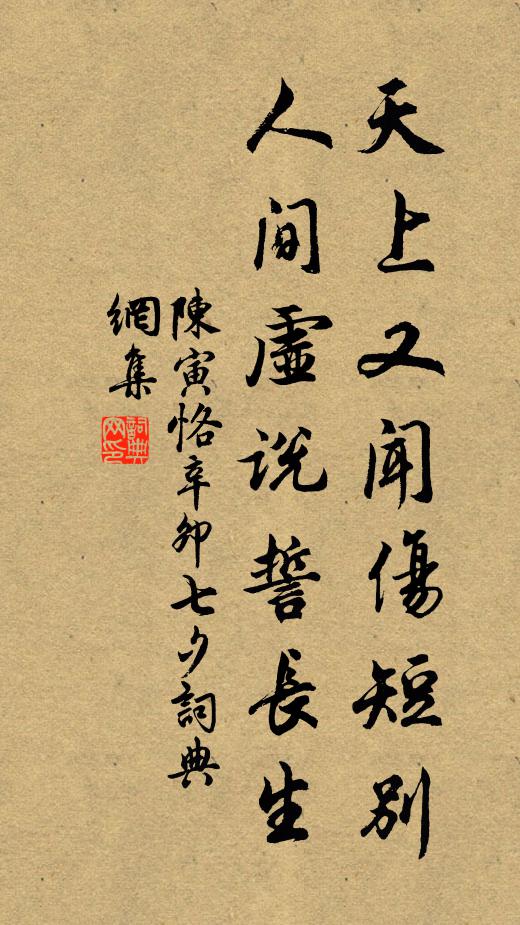 天上又聞傷短別
人間虛説誓長生
陳寅恪辛卯七夕詞典
網集
詞典网印